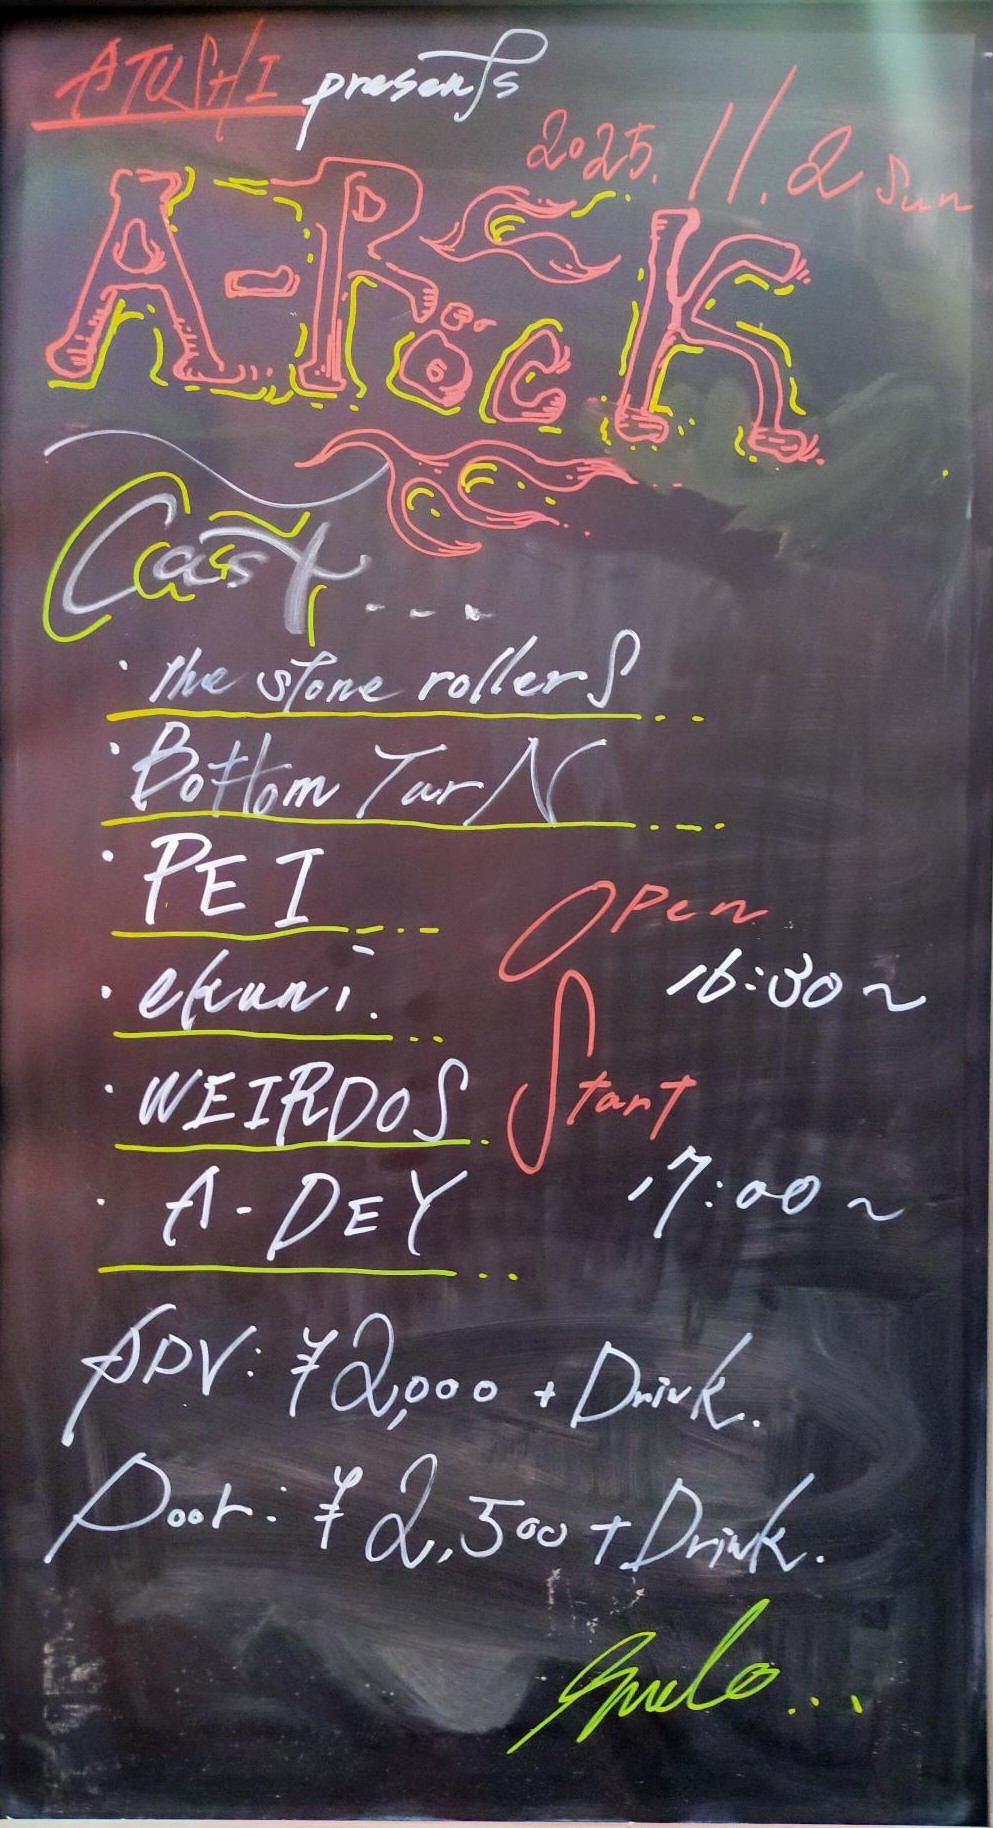 ATUSHI presents
2025. 11. 2 Sun
A-RocK
Cast...
・the stone rollerS
・Bottom TurN
・PEI
・ekuni.
・WEIRDOS
・A-DEY
Open
16:30~
Start
17:00~
ADV: ¥2,000 + Drink.
Door: ¥2,500 + Drink.